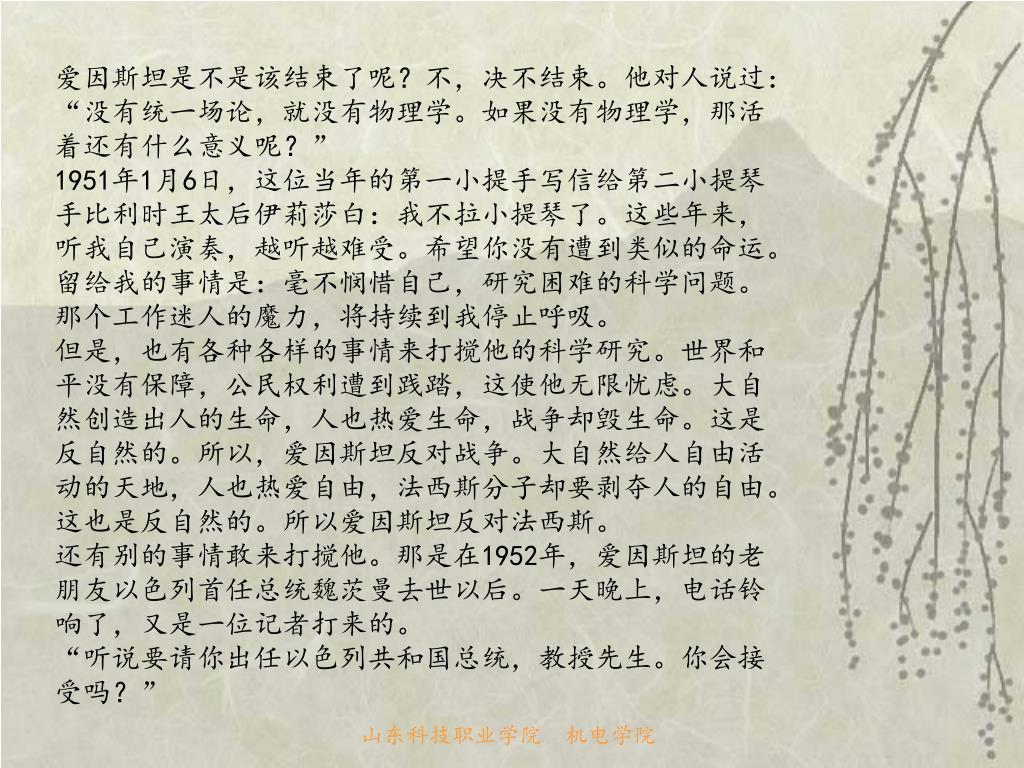 爱因斯坦是不是该结束了呢？不，决不结束。他对人说过：
“没有统一场论，就没有物理学。如果没有物理学，那活
着还有什么意义呢？”
1951年1月6日，这位当年的第一小提手写信给第二小提琴
手比利时王太后伊莉莎白：我不拉小提琴了。这些年来，
听我自己演奏，越听越难受。希望你没有遭到类似的命运。
留给我的事情是：毫不悯惜自己，研究困难的科学问题。
那个工作迷人的魔力，将持续到我停止呼吸。
但是，也有各种各样的事情来打搅他的科学研究。世界和
平没有保障，公民权利遭到践踏，这使他无限忧虑。大自
然创造出人的生命，人也热爱生命，战争却毁生命。这是
反自然的。所以，爱因斯坦反对战争。大自然给人自由活
动的天地，人也热爱自由，法西斯分子却要剥夺人的自由。
这也是反自然的。所以爱因斯坦反对法西斯。
还有别的事情敢来打搅他。那是在1952年，爱因斯坦的老
朋友以色列首任总统魏茨曼去世以后。一天晚上，电话铃
响了，又是一位记者打来的。
“听说要请你出任以色列共和国总统，教授先生。你会接
受吗？”
山东科技职业学院　机电学院